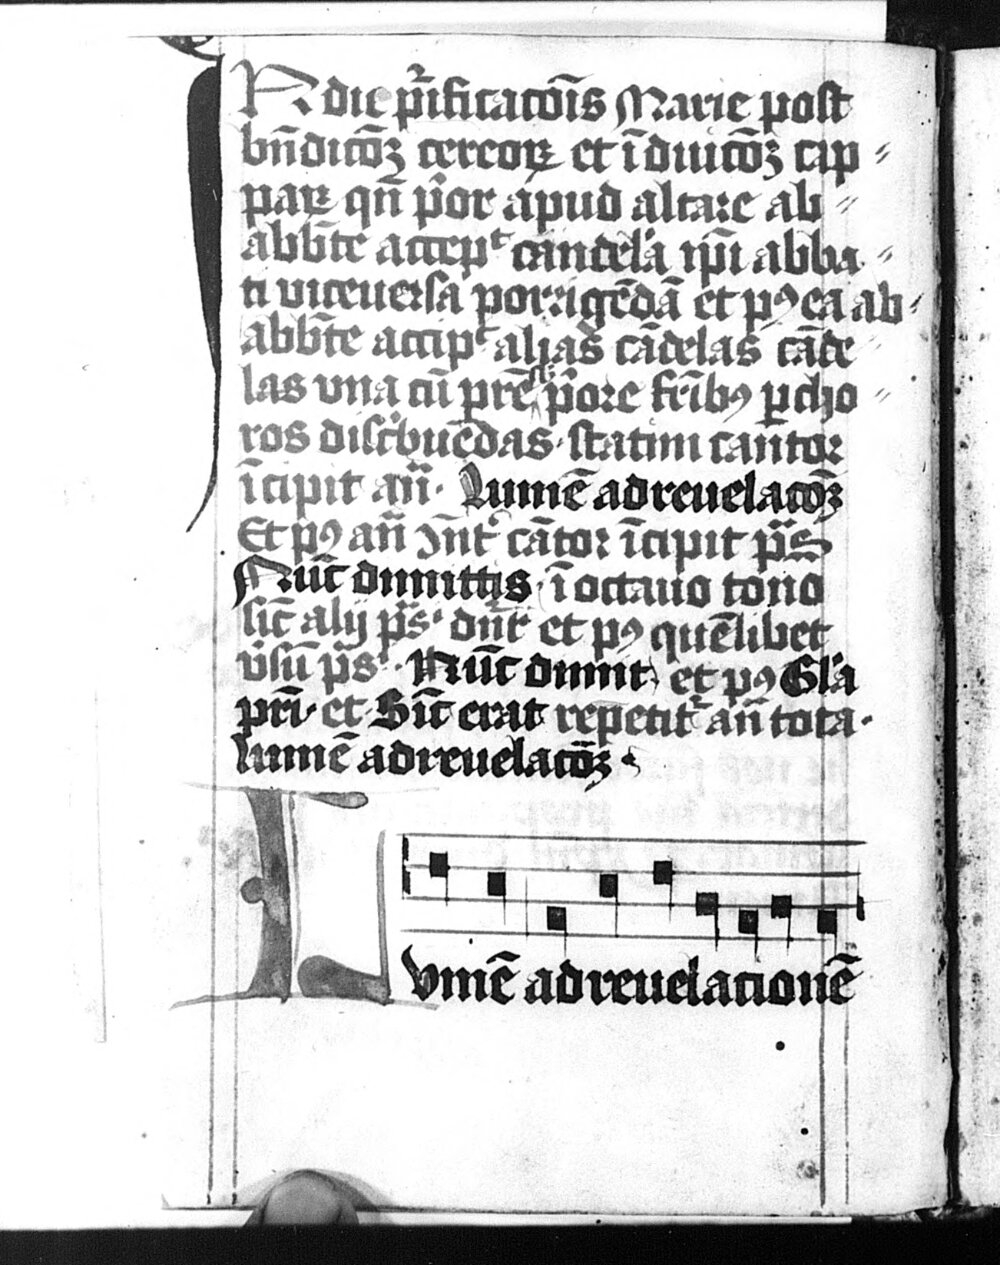 N die pͥificatōis Marie post
bn̄dictōꝫ cereoꝝ et īduictōꝫ cap⸗
paꝝ qn̄ pͥor apud altare ab⸗
abbīte accepᵗ candelā ip̄i abba⸗
ti viceuersa porrigēdā et pꝰ ea ab⸗
abbīte accipᵗ alias cādelas cāde⸗
las vna cū prē pͥore frībꝰ ꝑ cho⸗
ros distͥbuēdas · statim cantor
īcipit añ · Lumē ad reuelacōꝫ
Et pꝰ añ cātor īcipit pͣs
Nūc dimittis · ī octauo tono
sic̄ alij pͣs · dn̄r et pꝰ quēlibet
v̄sū pͣs · Nūc dimit et pꝰ Glͣa
prī · et Sic̄ erat repetitᵣ añ tota ·
lumē ad reuelacōꝫ ·
Lvmē ad reuelacionē